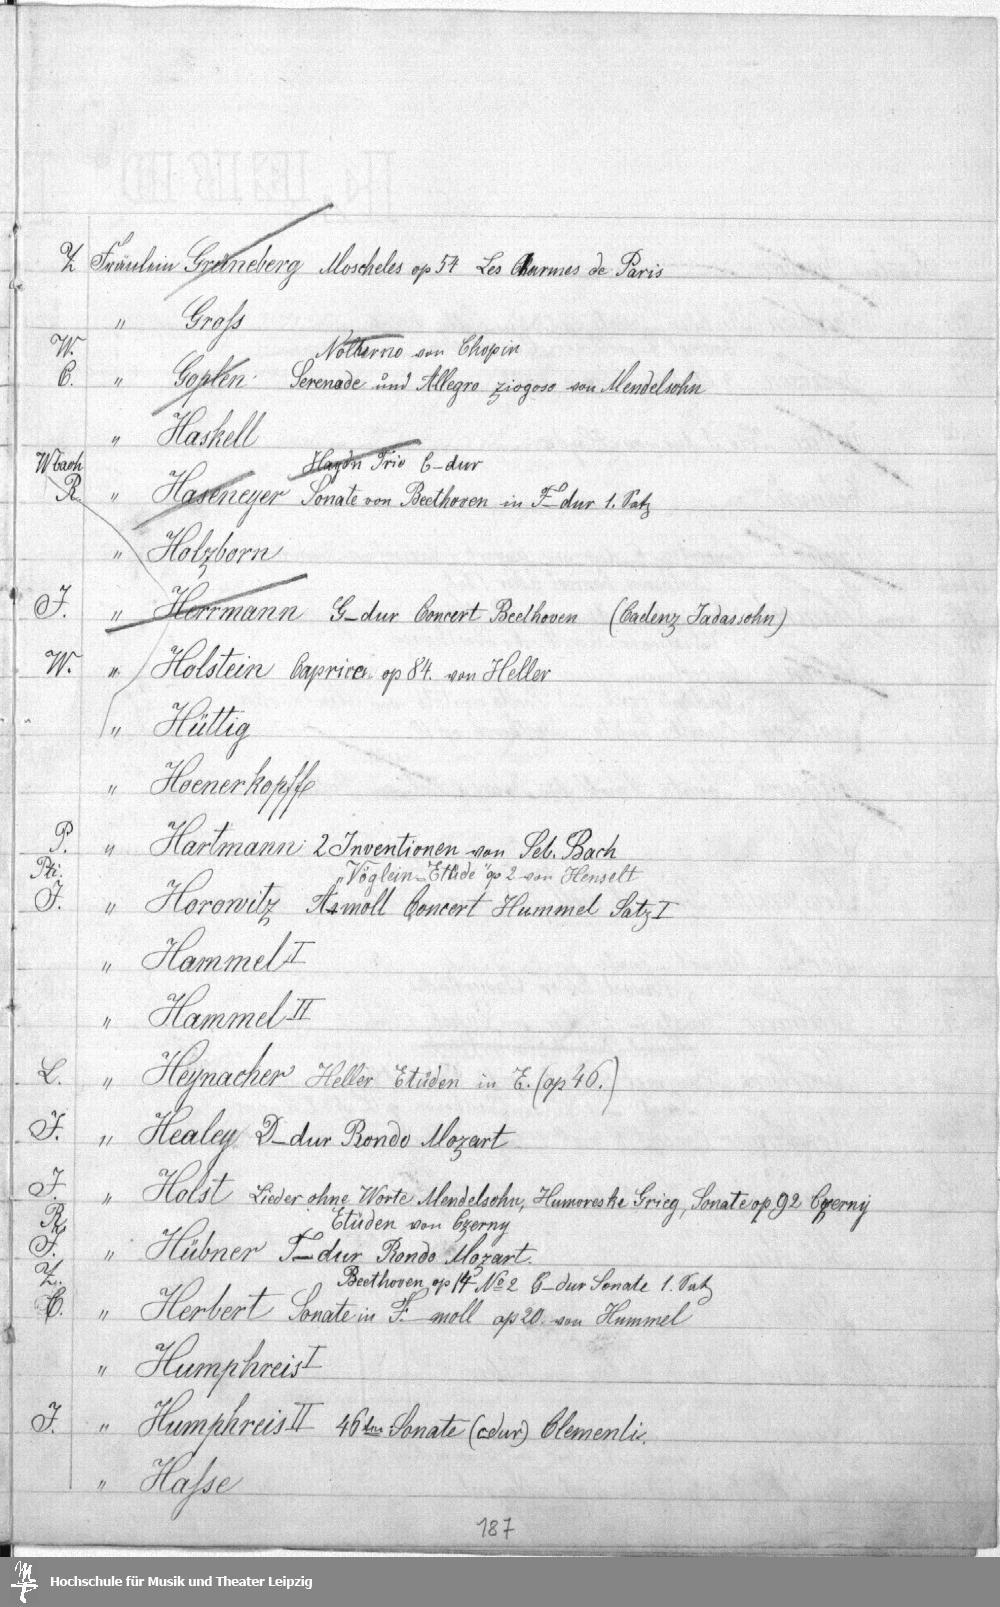 Z. Fräulein Grüneberg Moscheles op 54 Les Charmes de Paris
" Grass
W. Notturno von Chopin
C. " Gopfen Serenade und Allegro ziogoso von Mendelsohn
" Haskell
Wbach Haydn Trio C-dur
R. " Hasemeyer Sonate von Beethoven in F-dur 1. Satz
" Holzborn
J. " Herrmann G-dur Concert Beethoven (Cadenz Jadassohn)
W. " Holstein Caprice op 84. von Heller
" Hüttig
" Hoenerkopff
P. " Hartmann 2 Inventionen von Seb. Bach
"Vöglein-Etüde" op 2 von Henselt
J. " Horowitz As moll Concert Hummel Satz I
" Hammel I
" Hammel II
L. " Heynacher Heller Etüden in E. (op 46.)
J. " Healey D-dur Rondo Mozart
J. " Holst Lieder ohne Worte Mendelsohn, Humoreske Grieg, Sonate op 92 Czerny
Etüden von Czerny
J. " Hübner F-dur Rondo Mozart.
Z. Beethoven op 14 No 2 G-dur Sonate 1. Satz
C. " Herbert Sonate in F-moll op 20. von Hummel
" Humphreis I
J. " Humphreis II 46te Sonate (cdur) Clementi.
" Hasse
187
Hochschule für Musik und Theater Leipzig